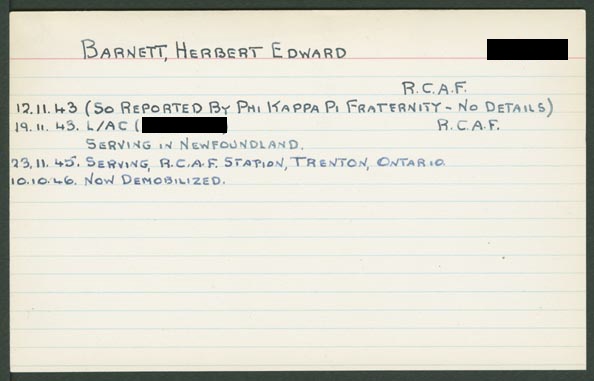 BARNETT, HERBERT EDWARD
R.C.A.F.
12.11.43 (SO REPORTED BY PHI KAPPA PI FRATERNITY - NO DETAILS)
19.11.43. L/AC ( ) R.C.A.F.
SERVING IN NEWFOUNDLAND.
23.11.45. SERVING, R.C.A.F. STATION, TRENTON, ONTARIO
10.10.46. NOW DEMOBILIZED.